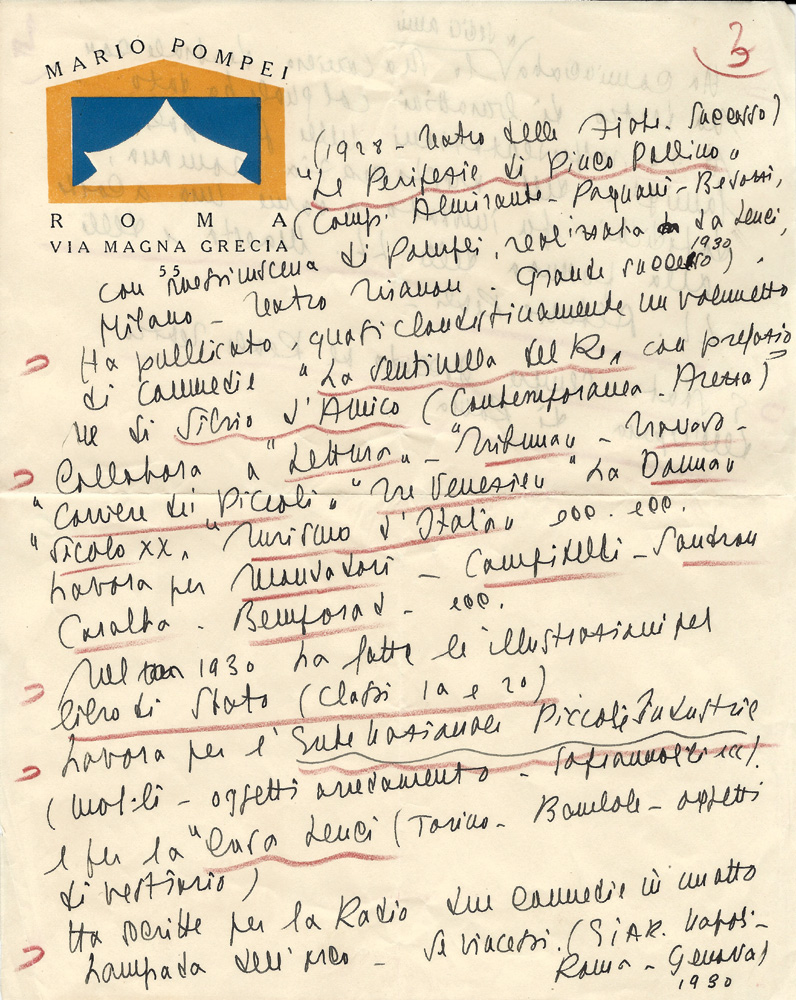 3
MARIO POMPEI
ROMA
VIA MAGNA GRECIA
55
(1928 - Teatro delle Fiabe. Successo)
"Le Peripezie di Pinco Pallino"
(Comp. Almirante - Pagnani - Besozzi,
con messinscena di Pompei, realizzata da Lenci,
Milano - Teatro Manzoni. Grande successo) 1930.
Ha pubblicato, quasi clandestinamente un volumetto
di Commedie "La Sentinella del Re" con prefazio
ne di Silvio d'Amico (Contemporanea - Arezzo)
Collabora a "Lettura" - "Tribuna" -
"Corriere dei Piccoli" "Tre Venezie" "La Donna"
"Secolo XX" "Turismo d'Italia" ecc. ecc.
Lavora per Mondadori - Campitelli - Sandron
Carabba - Bemporad - ecc.
Nel 1930 ha fatto le illustrazioni pel
libro di Stato (Classi 1a e 2a)
Lavora per l'Ente Nazionale Piccole Industrie
(mobili - oggetti arredamento - soprammobili ecc).
e per la "Casa Lenci (Torino - Bambole - oggetti
di vestiario)
Ha scritte per la Radio due commedie in un atto
Lampada dell'orco - Se vincessi. (EIAR. Napoli -
Roma - Genova)
1930